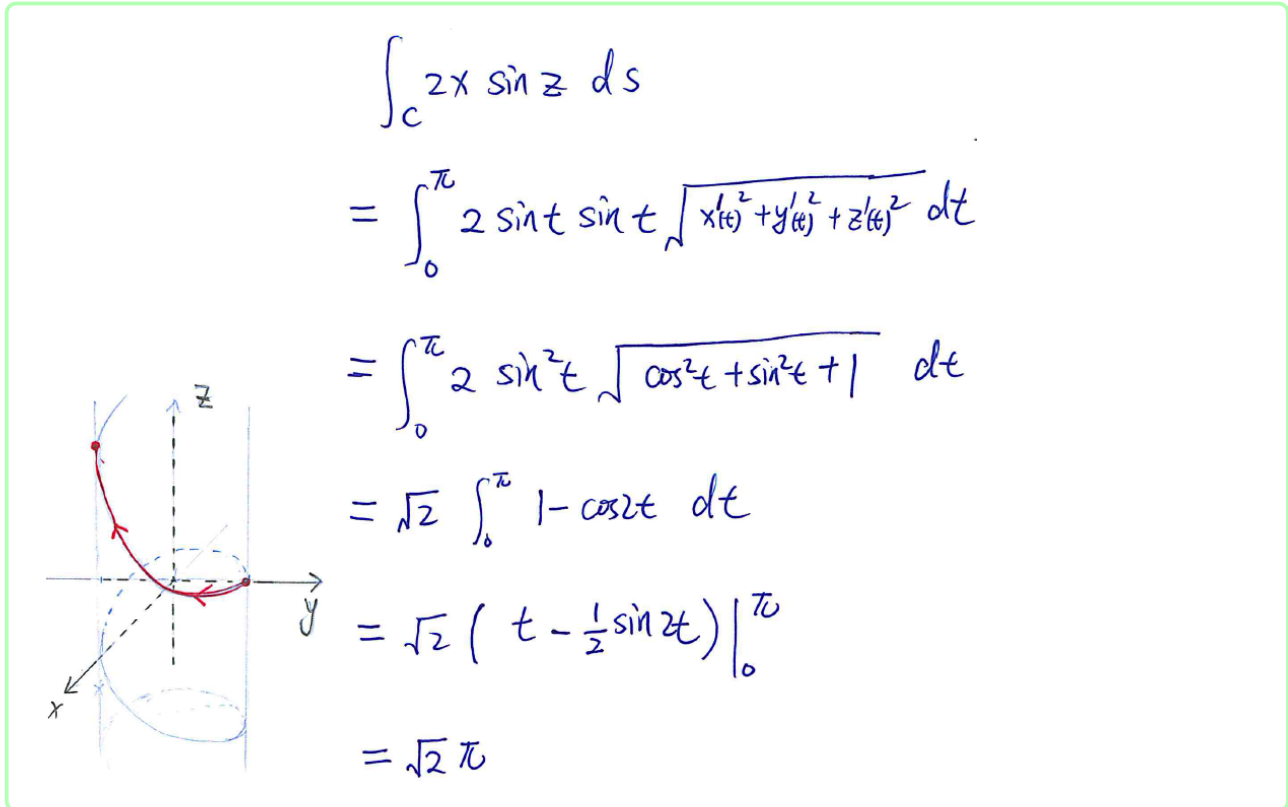 ∫_C 2x sin z ds
= ∫_0^π 2 sin t sin t √(x'(t)² + y'(t)² + z'(t)²) dt
= ∫_0^π 2 sin²t √(cos²t + sin²t + 1) dt
= √2 ∫_0^π 1 - cos2t dt
= √2 ( t - 1/2 sin 2t) |_0^π
= √2 π
z
y
x